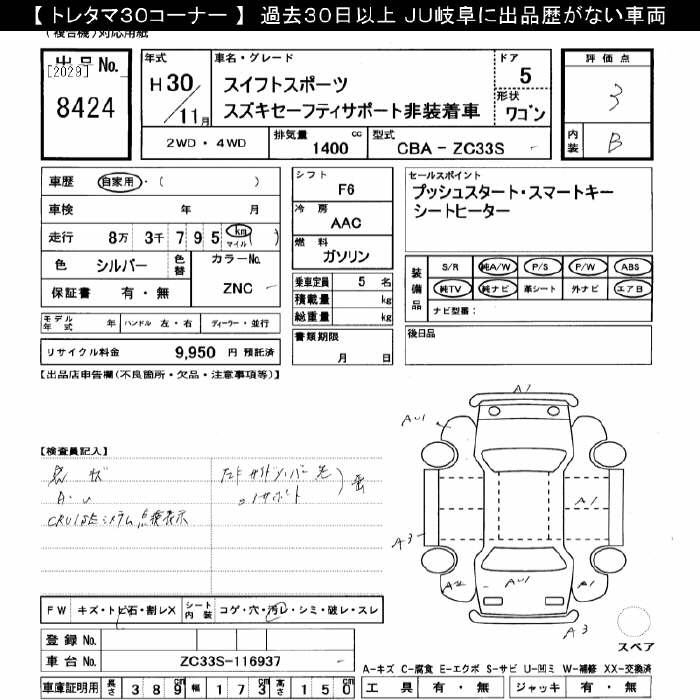 【 トレタマ30コーナー 】 過去30日以上 JU岐阜に出品歴がない車両
(複合機)対応用紙
出品No.
[2029]
8424
年式
H 30
11月
車名・グレード
スイフトスポーツ
スズキセーフティサポート非装着車
ドア
5
形状
ワゴン
評価点
3
内装
B
2WD・4WD
排気量
1400 cc
型式
CBA - ZC33S
車歴 自家用・( )
車検 年 月
走行 8万 3千 7 9 5 km マイル ( )
色 シルバー 色替
カラーNo.
ZNC
保証書 有・無
シフト
F6
冷房
AAC
燃料
ガソリン
乗車定員 5 名
積載量 kg
総重量 kg
書類期限
月 日
セールスポイント
プッシュスタート・スマートキー
シートヒーター
装備品
S/R 純A/W P/S P/W ABS
純TV 純ナビ 革シート 外ナビ エアB
ナビ型番:
後日品
モデル年式 年 ハンドル 左・右 ディーラー・並行
リサイクル料金 9,950 円 預託済
【出品店申告欄(不良箇所・欠品・注意事項等)】
【検査員記入】
A・U
CRUISEシステム点検表示
FW キズ・トビ石・割レX シート内装 コゲ・穴・汚レ・シミ・破レ・スレ
登録No.
車台No. ZC33S-116937
車庫証明用 長さ 389cm 幅 173cm 高さ 150cm
A1
AU1
A1
A3
A2
AU1
A1
A3
スペア
A-キズ C-腐食 E-エクボ S-サビ U-凹ミ W-補修 XX-交換済
工具 有・無 ジャッキ 有・無